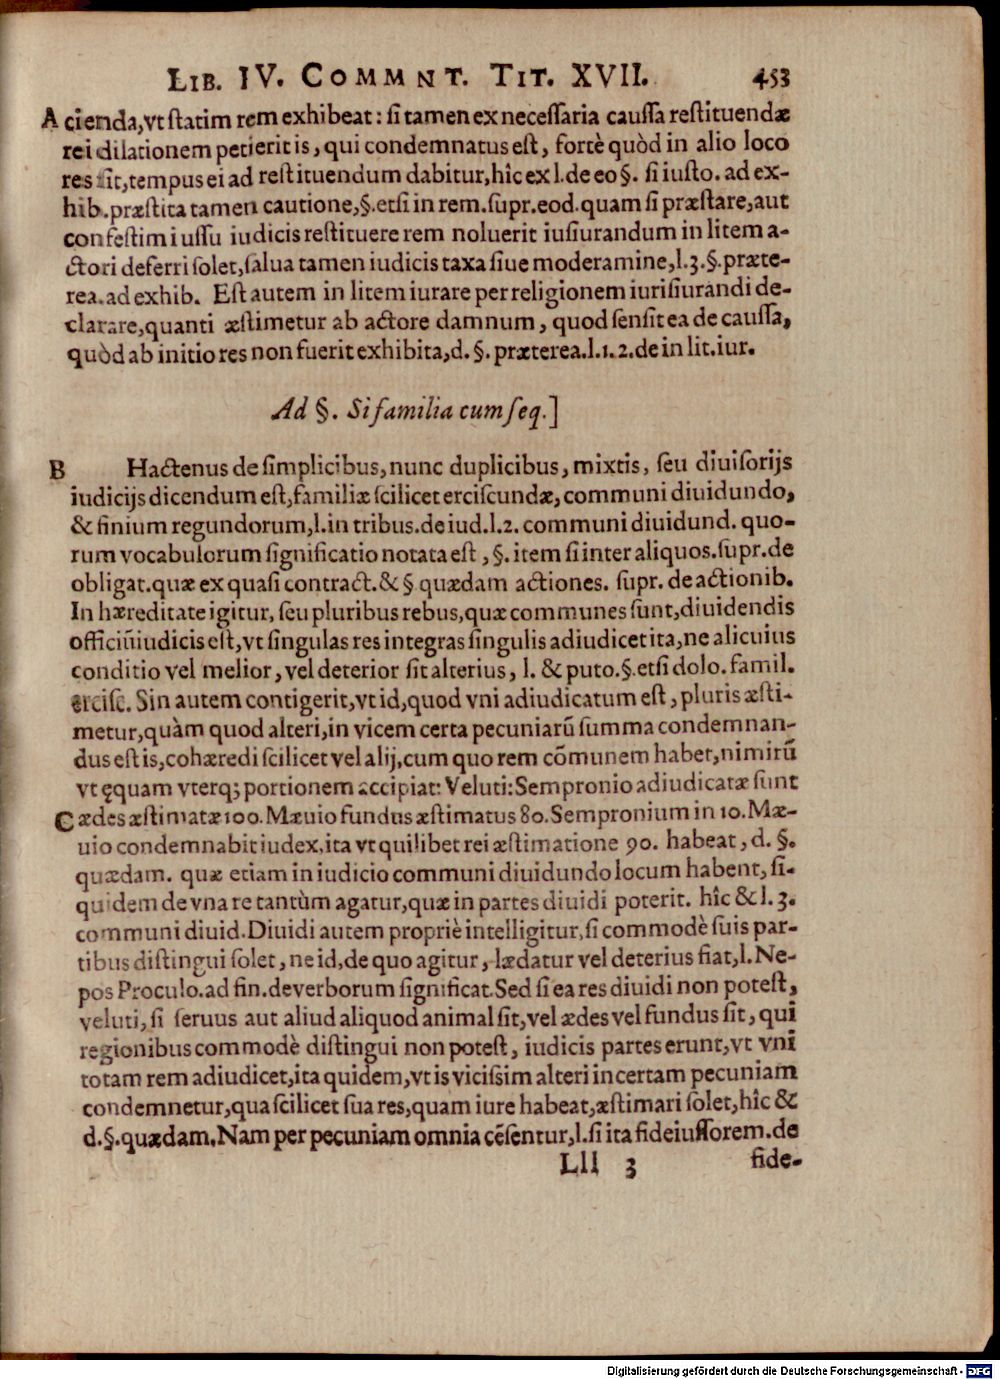 LIB. IV. COMMNT. TIT. XVII. 453
A cienda,vt ſtatim rem exhibeat: ſi tamen ex neceſſaria cauſſa reſtituendæ
rei dilationem petierit is, qui condemnatus eſt, fortè quòd in alio loco
res ſit,tempus ei ad reſtituendum dabitur,hîc ex l.de eo §. ſi iuſto. ad ex-
hib.præſtita tamen cautione,§.etſi in rem.ſupr.eod.quam ſi præſtare,aut
confeſtim iuſſu iudicis reſtituere rem noluerit iuſiurandum in litem a-
ctori deferri ſolet,ſalua tamen iudicis taxa ſiue moderamine,l.3.§.præte-
rea.ad exhib. Eſt autem in litem iurare per religionem iuriſiurandi de-
clarare,quanti æſtimetur ab actore damnum, quod ſenſit ea de cauſſa,
quòd ab initio res non fuerit exhibita,d. §. præterea.l.1.2.de in lit.iur.
Ad §. Si familia cum ſeq.]
B Hactenus de ſimplicibus,nunc duplicibus, mixtis, ſeu diuiſorijs
iudicijs dicendum eſt,familiæ ſcilicet erciſcundæ, communi diuidundo,
& finium regundorum,l.in tribus.de iud.l.2. communi diuidund. quo-
rum vocabulorum ſignificatio notata eſt, §. item ſi inter aliquos.ſupr.de
obligat.quæ ex quaſi contract.& § quædam actiones. ſupr. de actionib.
In hæreditate igitur, ſeu pluribus rebus,quæ communes ſunt,diuidendis
officiũ iudicis eſt,vt ſingulas res integras ſingulis adiudicet ita,ne alicuius
conditio vel melior, vel deterior ſit alterius, l. & puto.§.etſi dolo. famil.
erciſc. Sin autem contigerit,vt id,quod vni adiudicatum eſt, pluris æſti-
metur,quàm quod alteri,in vicem certa pecuniarũ ſumma condemnan-
dus eſt is,cohæredi ſcilicet vel alij,cum quo rem cõmunem habet,nimirũ
vt ęquam vterq; portionem accipiat: Veluti: Sempronio adiudicatæ ſunt
C ædes æſtimatæ 100. Mæuio fundus æſtimatus 80. Sempronium in 10. Mæ-
uio condemnabit iudex,ita vt quilibet rei æſtimatione 90. habeat, d. §.
quædam. quæ etiam in iudicio communi diuidundo locum habent, ſi-
quidem de vna re tantùm agatur,quæ in partes diuidi poterit. hîc & l. 3.
communi diuid. Diuidi autem propriè intelligitur,ſi commodè ſuis par-
tibus diſtingui ſolet, ne id,de quo agitur, lædatur vel deterius fiat,l. Ne-
pos Proculo.ad fin.de verborum ſignificat. Sed ſi ea res diuidi non poteſt,
veluti, ſi ſeruus aut aliud aliquod animal ſit,vel ædes vel fundus ſit, qui
regionibus commodè diſtingui non poteſt, iudicis partes erunt,vt vni
totam rem adiudicet,ita quidem,vt is viciſſim alteri in certam pecuniam
condemnetur,qua ſcilicet ſua res,quam iure habeat,æſtimari ſolet,hîc &
d.§.quædam. Nam per pecuniam omnia cẽſentur,l.ſi ita fideiuſſorem.de
Lll 3 fide-
Digitalisierung gefördert durch die Deutsche Forschungsgemeinschaft - DFG